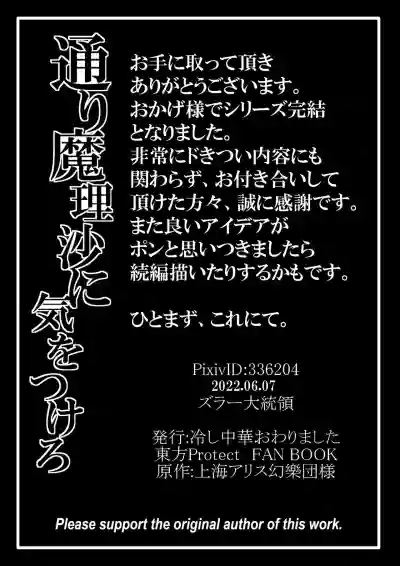 通り魔理沙に気をつけろ
お手に取って頂き
ありがとうございます。
おかげ様でシリーズ完結
となりました。
非常にドきつい内容にも
関わらず、お付き合いして
頂けた方々、誠に感謝です。
また良いアイデアが
ポンと思いつきましたら
続編描いたりするかもです。
ひとまず、これにて。
PixivID:336204
2022.06.07
ズラー大統領
発行:冷し中華おわりました
東方Protect FAN BOOK
原作:上海アリス幻樂団様
Please support the original author of this work.